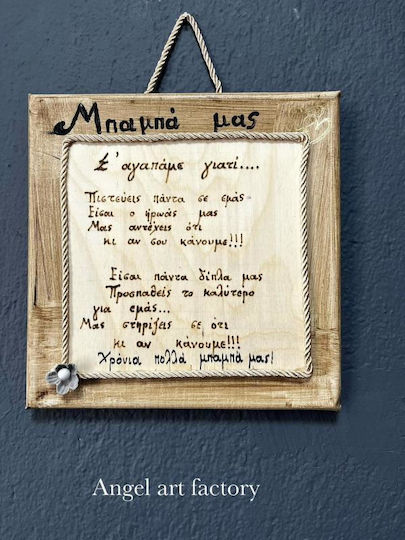 Μπαμπά μας
Σ' αγαπάμε γιατί....
Πιστεύεις πάντα σε εμάς
Είσαι ο ήρωάς μας
Μας αντέχεις ότι
κι αν σου κάνουμε!!!
Είσαι πάντα δίπλα μας
Προσπαθείς το καλύτερο
για εμάς...
Μας στηρίζεις σε ότι
κι αν κάνουμε!!!
Χρόνια πολλά μπαμπά μας!
Angel art factory